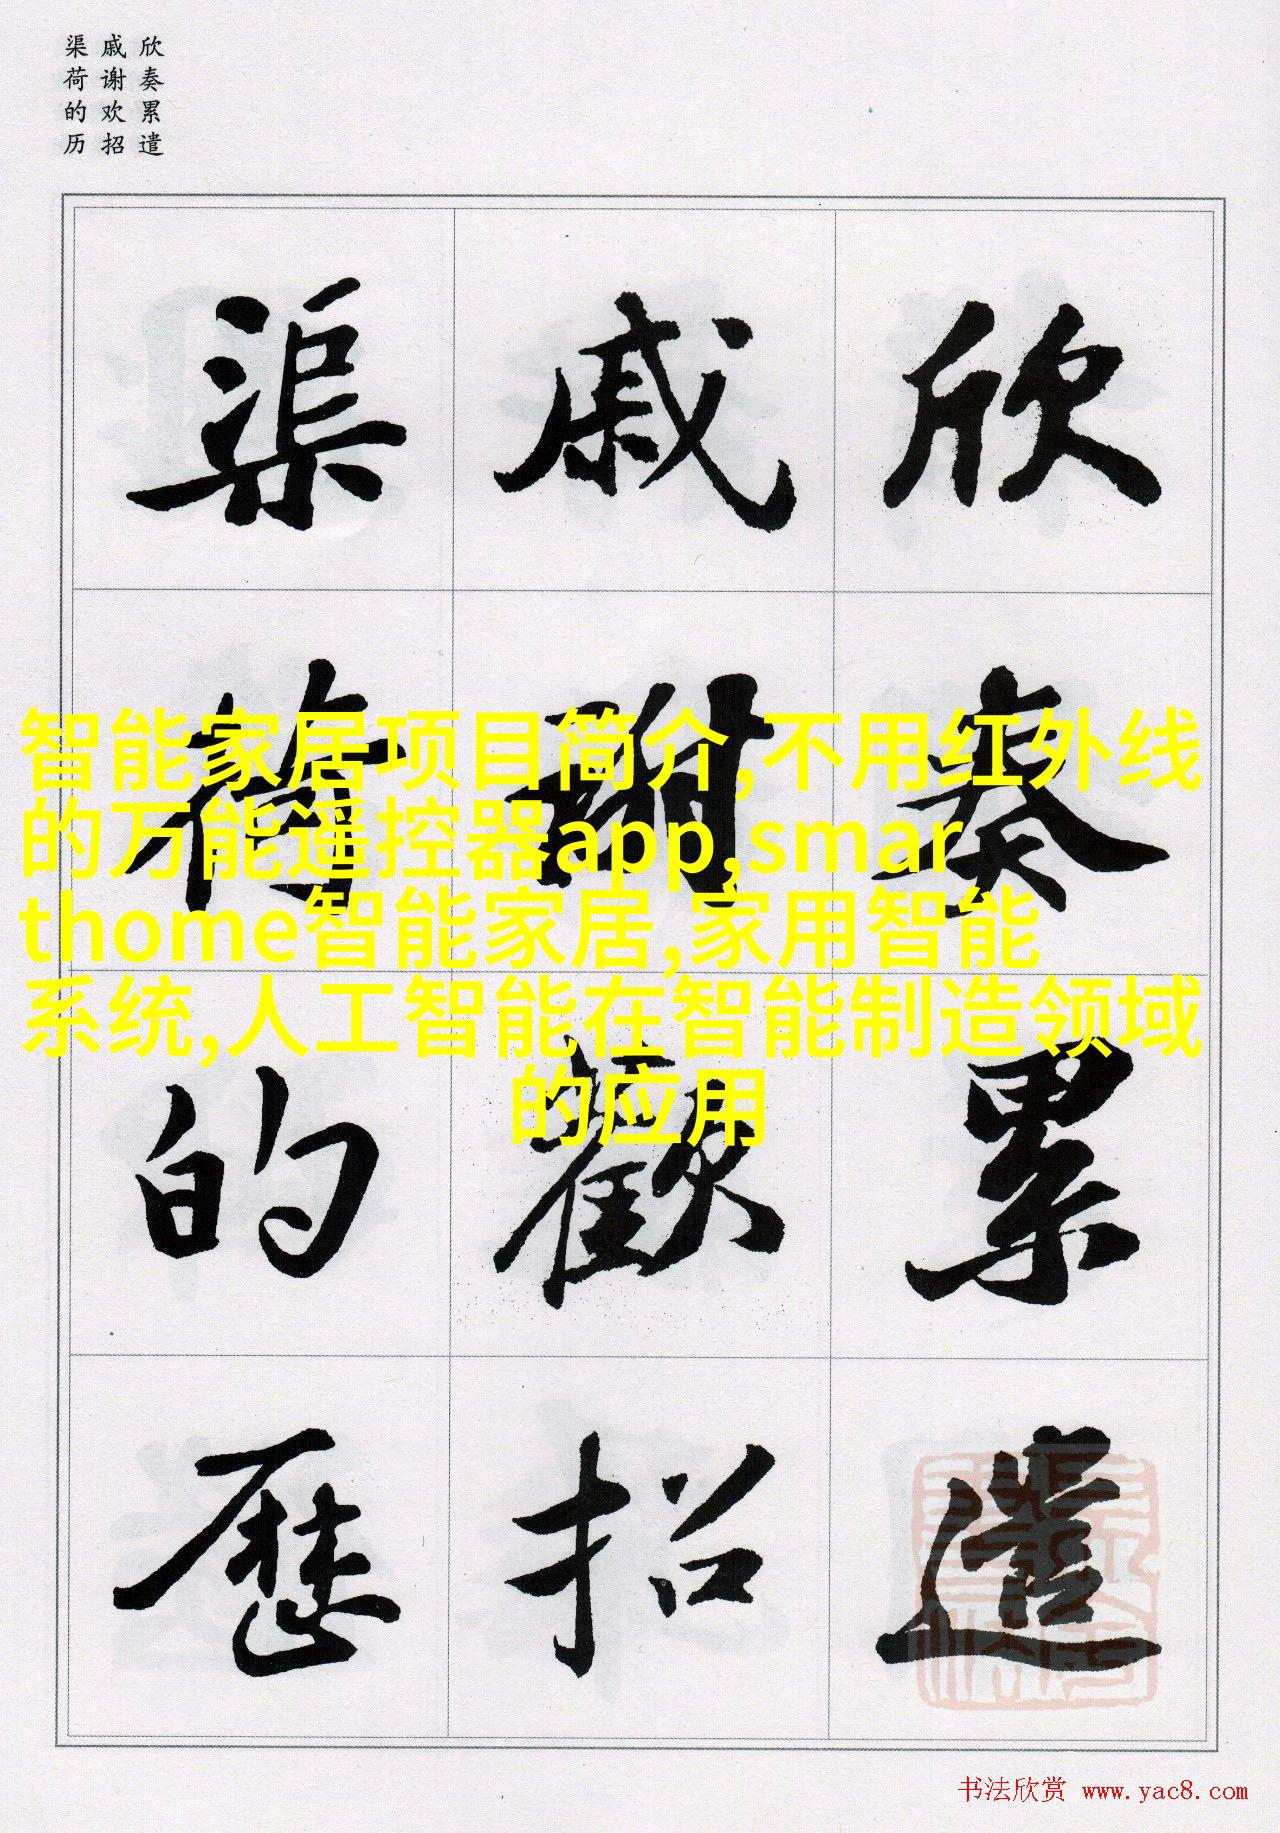 欣奏累遣
戚谢欢招
渠荷的历
欣奏累遣
戚謝歡招
渠荷的歷
智能家居项目简介,不用红外线
的万能遥控器app,smar
thome智能家居,家用智能
系统,人工智能在智能制造领域
的应用
书法欣赏 www.yac8.com